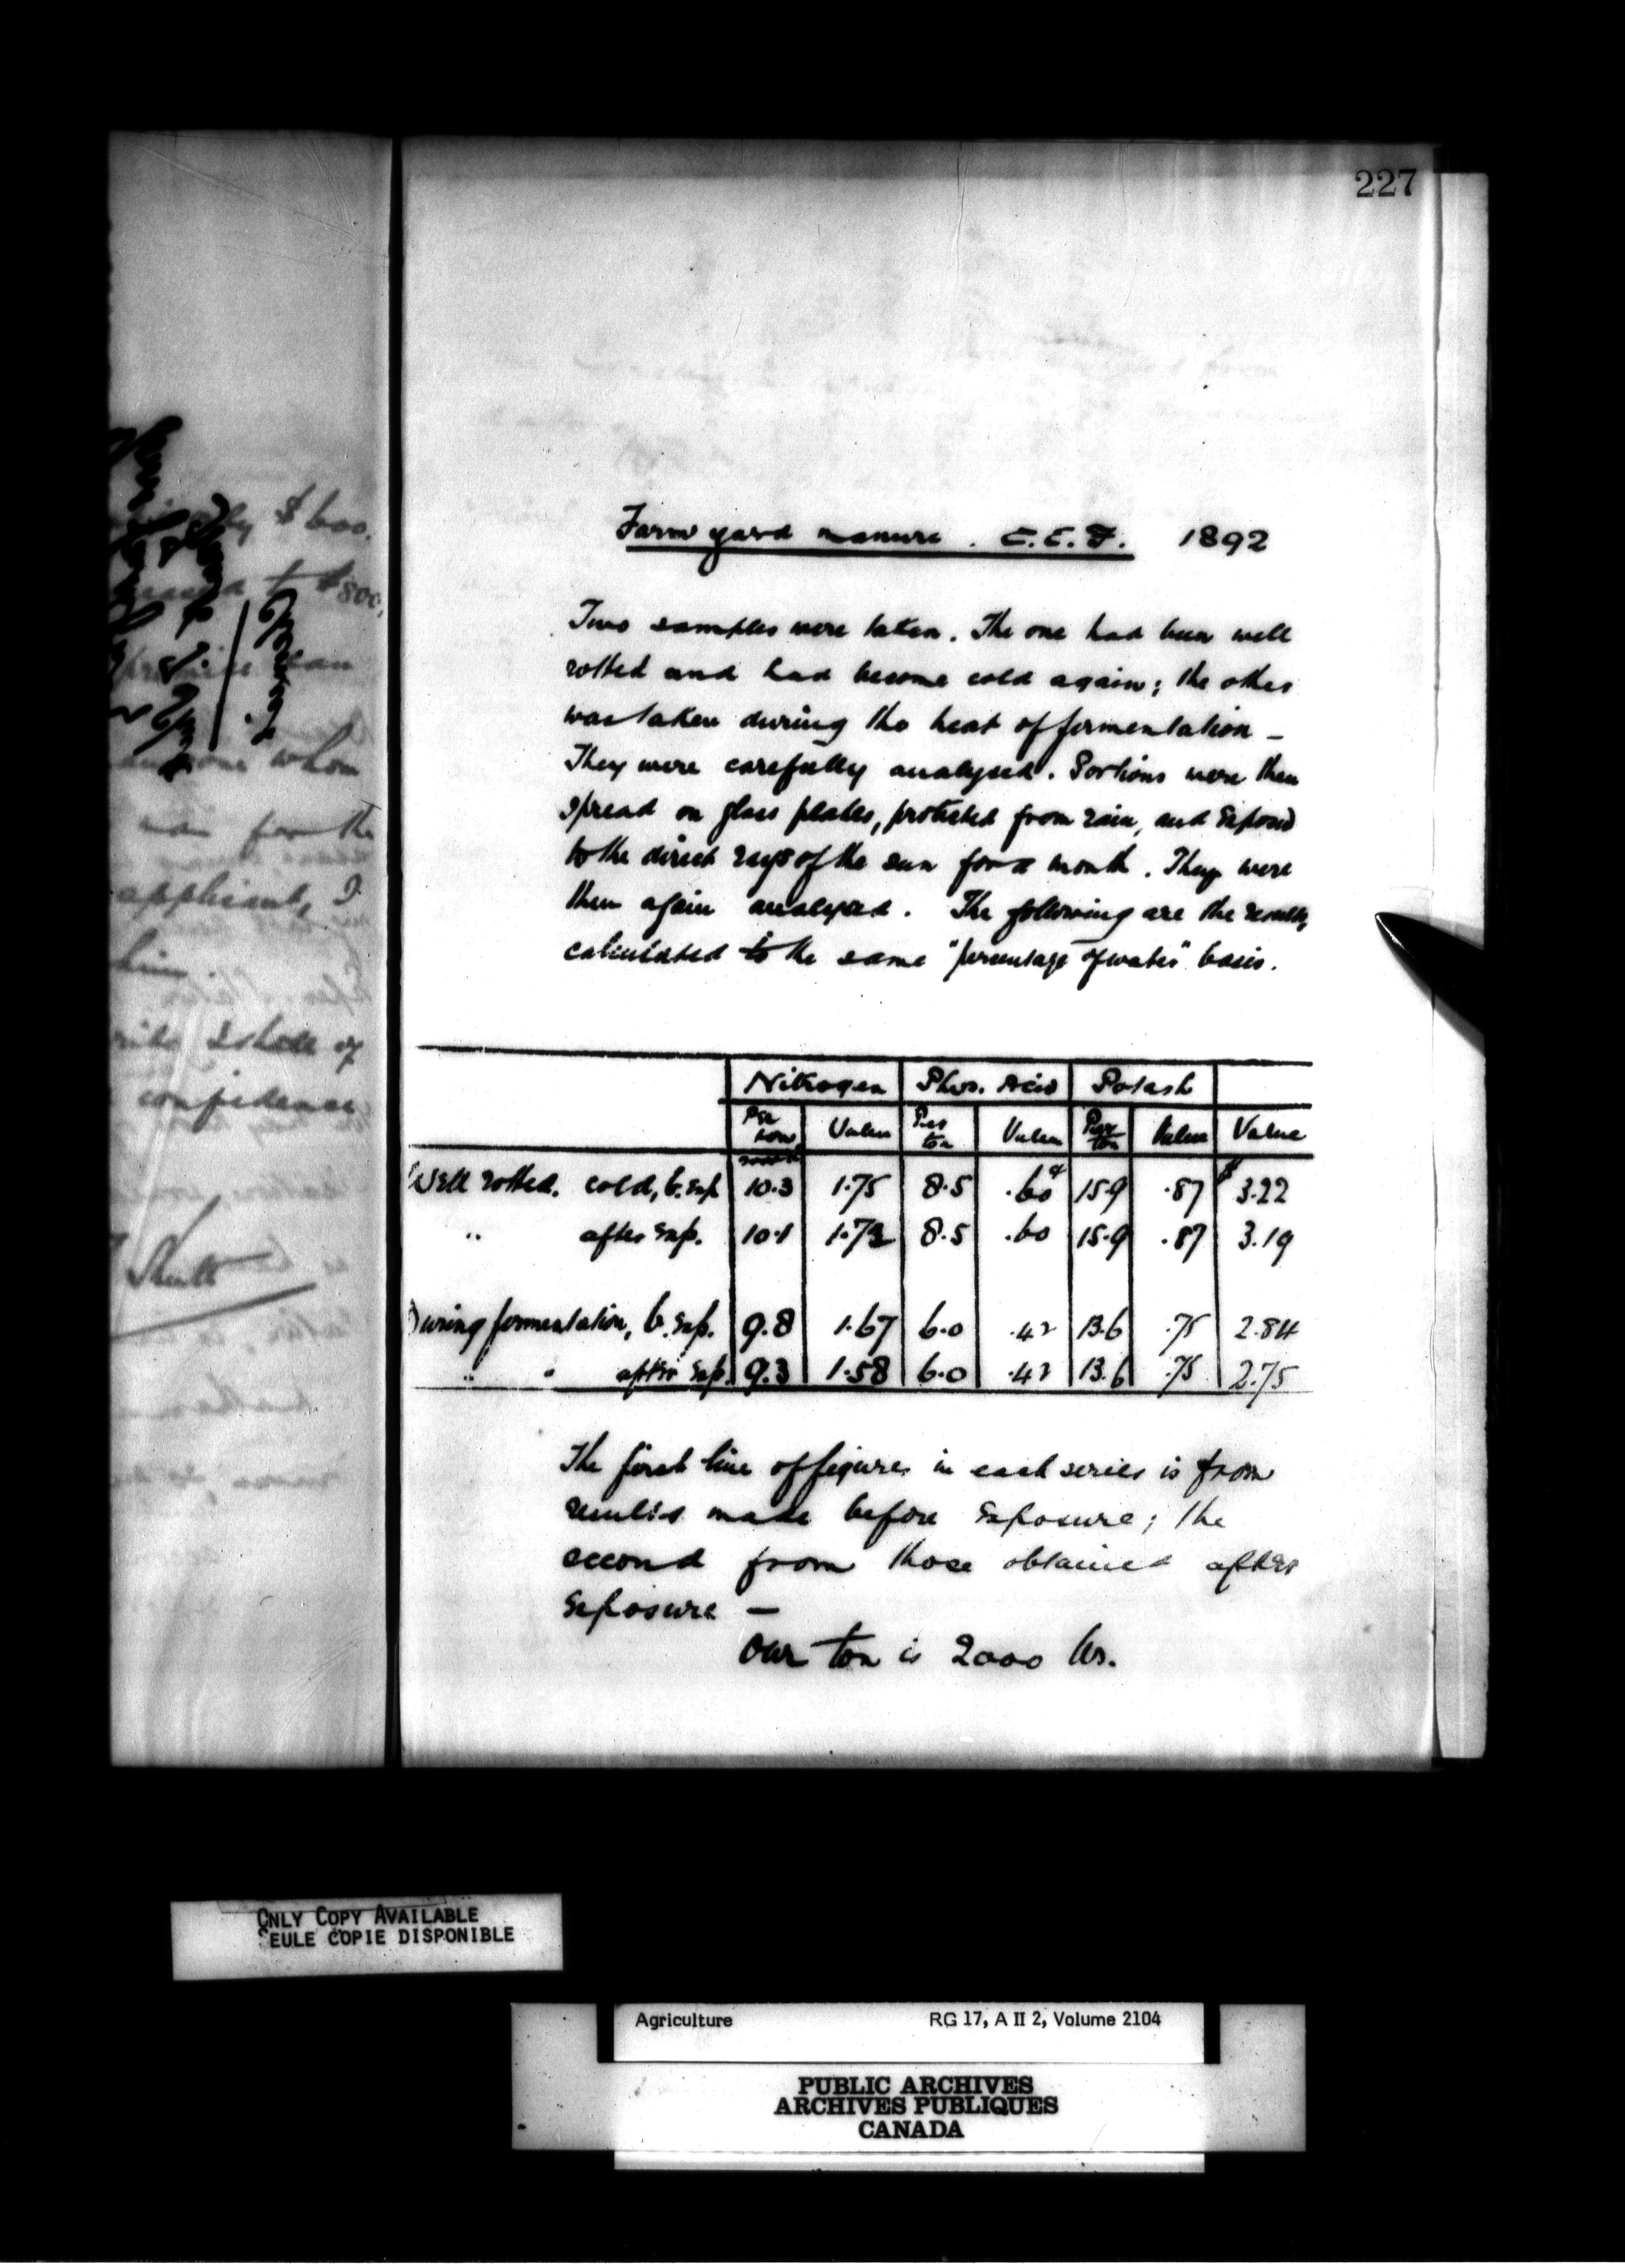 227
Farm yard manure. C.E.F. 1892
Two samples were taken. The one had been well
rotted and had become cold again; the other
was taken during the heat of fermentation –
They were carefully analysed. Portions were then
spread on glass plates, protected from rain, and exposed
to the direct rays of the sun for a month. They were
then again analysed. The following are the results,
calculated to the same "percentage of water" basis.
Nitrogen Phos. Acid Potash
Per ton Value Per ton Value Per ton Value Value
Well rotted, cold, b. Exp 10.3 1.75 8.5 .60 15.9 .87 $3.22
" after Exp. 10.1 1.72 8.5 .60 15.9 .87 3.19
During fermentation, b. Exp. 9.8 1.67 6.0 .42 13.6 .75 2.84
" " after Exp. 9.3 1.58 6.0 .42 13.6 .75 2.75
The first line of figures in each series is from
results made before Exposure; the
second from those obtained after
Exposure –
Our ton is 2000 lbs.
$600.
$800,
whom
for the
applicant, I
him
of
confidence
Shutt
ONLY COPY AVAILABLE
SEULE COPIE DISPONIBLE
Agriculture RG 17, A II 2, Volume 2104
PUBLIC ARCHIVES
ARCHIVES PUBLIQUES
CANADA